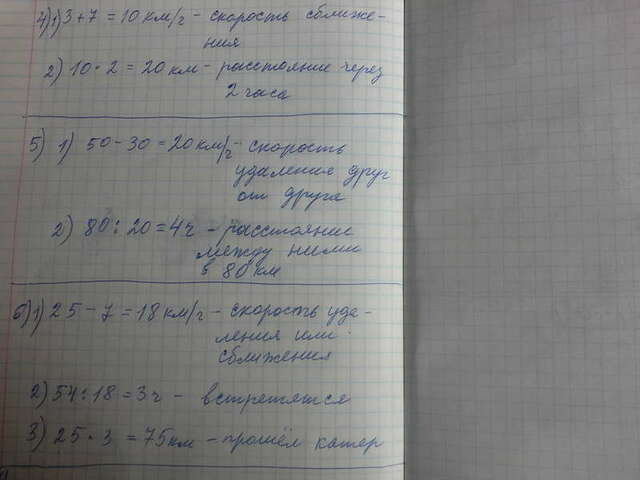 4) 1) 3 + 7 = 10 км/г - скорость сближе-
ния
2) 10 • 2 = 20 км - расстояние через
2 часа
5) 1) 50 - 30 = 20 км/г - скорость
удаления друг
от друга
2) 80 : 20 = 4 ч - расстоянии
между ними
в 80 км
6) 1) 25 - 7 = 18 км/г - скорость уда-
ления или
сближения
2) 54 : 18 = 3 ч - встретятся
3) 25 • 3 = 75 км - прошёл катер